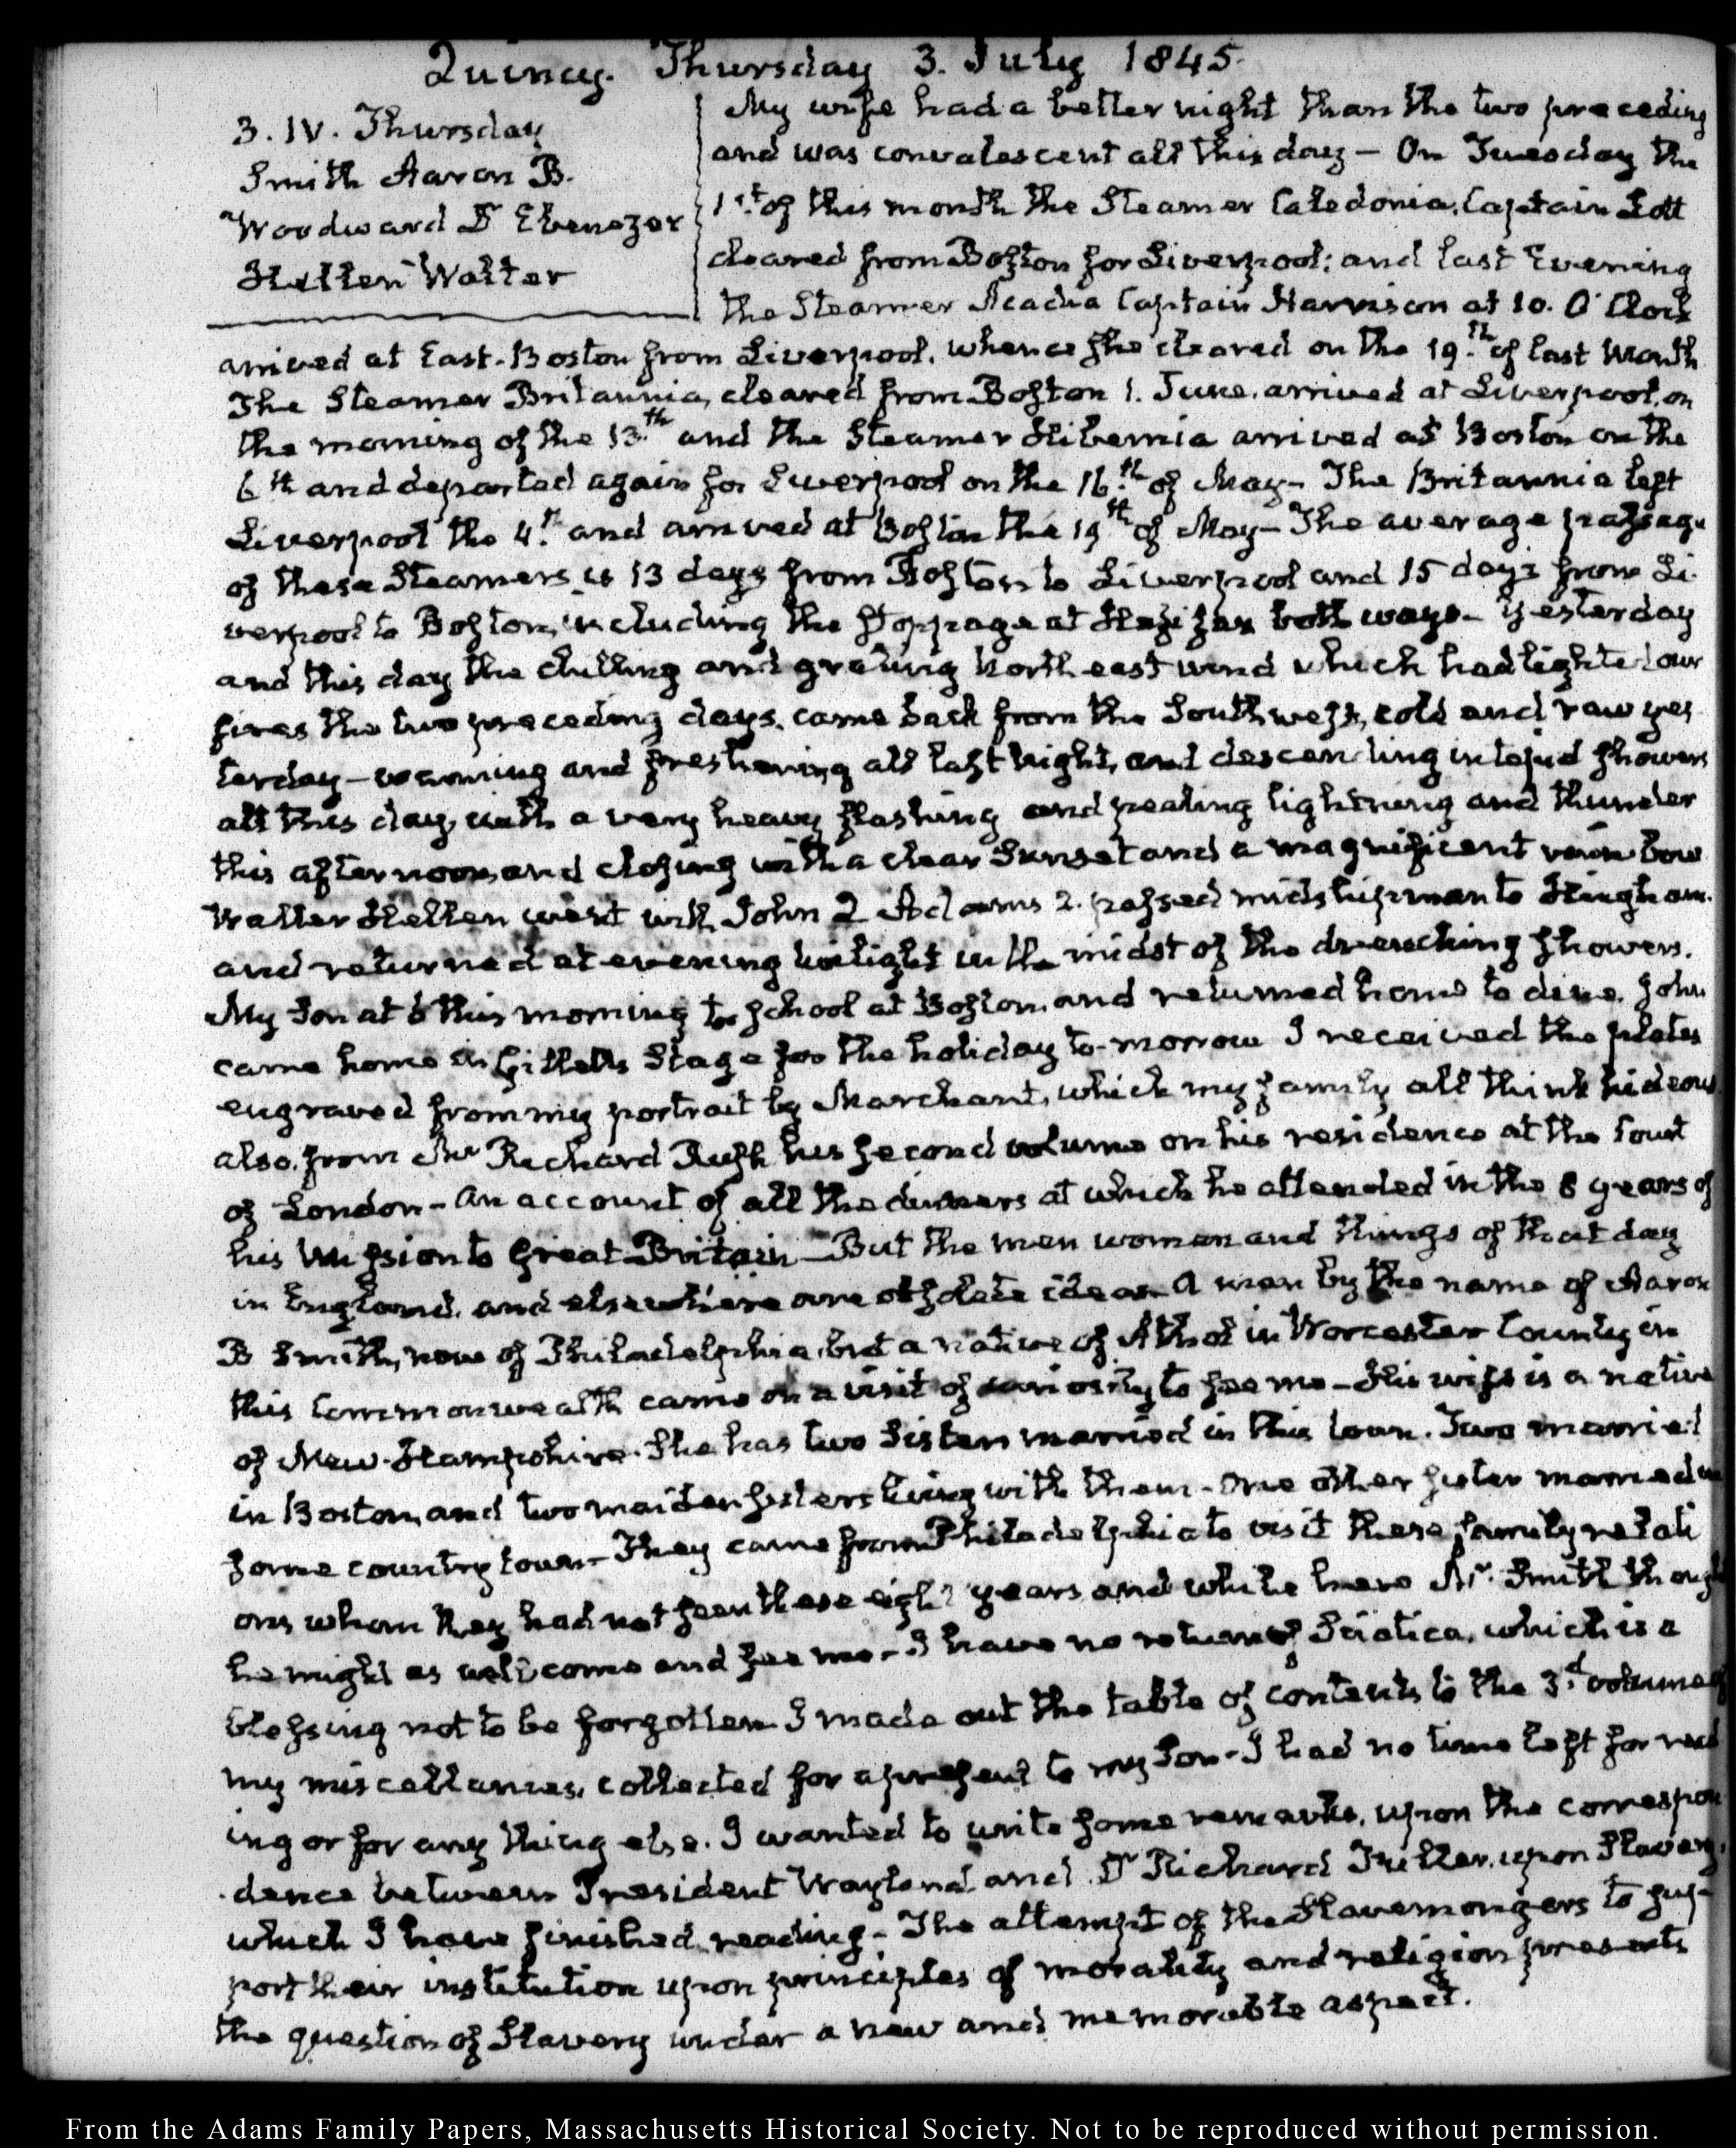 Quincy. Thursday 3. July 1845.
3. IV. Thursday
Smith Aaron B.
Woodward Dr Ebenezer
Hellen Walter
My wife had a better night than the two preceding
and was convalescent all this day — On Tuesday the
1st of this month the Steamer Caledonia, Captain Lott
cleared from Boston for Liverpool; and last Evening
the Steamer Acadia Captain Harrison at 10. O'Clock
arrived at East-Boston from Liverpool, whence she cleared on the 19th of last Month
The Steamer Britannia, cleared from Boston 1. June, arrived at Liverpool, on
the morning of the 13th and the Steamer Hibernia arrived at Boston on the
6th and departed again for Liverpool on the 16th of May— The Britannia left
Liverpool the 4th and arrived at Boston the 19th of May— The average passage
of these Steamers is 13 days from Boston to Liverpool and 15 days from Li-
verpool to Boston, including the stoppage at Halifax both ways— Yesterday
and this day the chilling and grating North east wind which had lighted our
fires the two preceding days, came back from the South west, cold and raw yes-
terday— warming and freshening all last night, and descending in tepid showers
all this day, with a very heavy flashing and pealing lightning and thunder
this afternoon, and closing with a clear Sunset and a magnificent rainbow
Walter Hellen went with John Q Adams 2. passed midshipman to Hingham.
and returned at evening twilight in the midst of the drenching showers.
My Son at 6 this morning to school at Boston, and returned home to dine. John
came home in Gillett's Stage for the holiday to-morrow I received the plates
engraved from my portrait by Marchant, which my family all think hideous
also, from Mr Richard Rush his second volume on his residence at the Court
of London— An account of all the dinners at which he attended in the 8 years of
his Mission to Great Britain— But the men women and things of that day
in England, and elsewhere are of date A man by the name of Aaron
B Smith, now of Philadelphia, but a native of Athol in Worcester County in
this Commonwealth came on a visit of curiosity to see me— His wife is a native
of New-Hampshire. She has two Sisters married in this town. Two married
in Boston, and two maiden sisters living with them— One other sister married in
some country town— They came from Philadelphia to visit these family relati
ons whom they had not seen these eight years and while here Mr. Smith thought
he might as well come and see me— I have no return of Sciatica, which is a
blessing not to be forgotten I made out the table of contents to the 3d volume of
my miscellanies, collected for a present to my Son— I had no time left for read
ing or for any thing else. I wanted to write some remarks, upon the correspon
dence between President Wayland and Dr Richard Fuller, upon Slavery,
which I have finished reading— The attempt of the Slavemongers to sup-
port their institution upon principles of morality and religion presents
the question of Slavery under a new and memorable aspect.
From the Adams Family Papers, Massachusetts Historical Society. Not to be reproduced without permission.